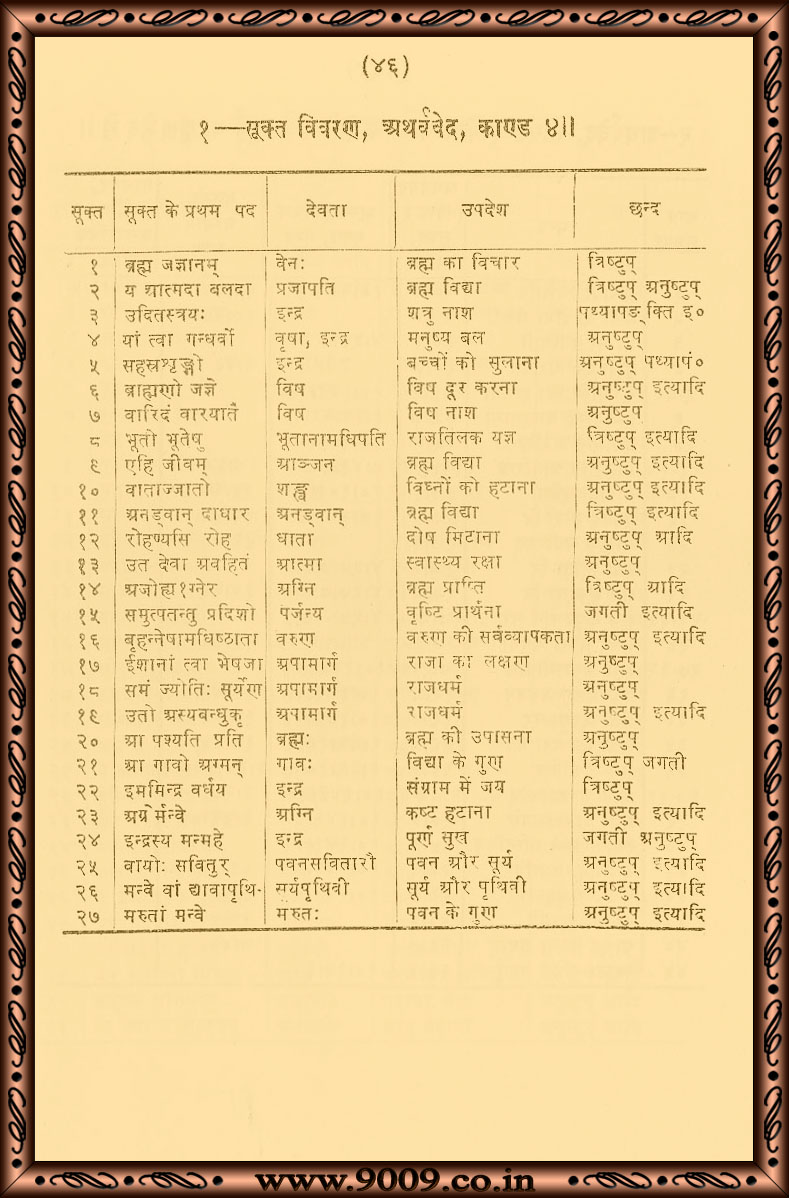 (४६)
१—सूक्त विवरण, अथर्ववेद, काण्ड ४॥
सूक्त सूक्त के प्रथम पद देवता उपदेश छन्द
१ ब्रह्म जज्ञानम् वेनः ब्रह्म का विचार त्रिष्टुप्
२ य आत्मदा बलदा प्रजापति ब्रह्म विद्या त्रिष्टुप् अनुष्टुप्
३ उदितस्त्रयः इन्द्र शत्रु नाश पथ्यापङ्क्ति इ०
४ यां त्वा गन्धर्वो वृषा, इन्द्र मनुष्य बल अनुष्टुप्
५ सहस्रशृङ्गो इन्द्र बच्चों को सुलाना अनुष्टुप् पथ्यापं०
६ ब्राह्मणो जज्ञे विष विष दूर करना अनुष्टुप् इत्यादि
७ वारिदं वारयातै विष विष नाश अनुष्टुप्
८ भूतो भूतेषु भूतानामधिपति राजतिलक यज्ञ त्रिष्टुप् इत्यादि
९ एहि जीवम् आञ्जन ब्रह्म विद्या अनुष्टुप् इत्यादि
१० वाताज्जातो शङ्ख विघ्नों को हटाना अनुष्टुप् इत्यादि
११ अनड्वान् दाधार अनड्वान् ब्रह्म विद्या त्रिष्टुप् इत्यादि
१२ रोहण्यसि रोह धाता दोष मिटाना अनुष्टुप् आदि
१३ उत देवा अवहितं आत्मा स्वास्थ्य रक्षा अनुष्टुप्
१४ अजोह्य१ग्नेर अग्नि ब्रह्म प्राप्ति त्रिष्टुप् आदि
१५ समुत्पतन्तु प्रदिशो पर्जन्य वृष्टि प्रार्थना जगती इत्यादि
१६ बृहन्नेषामधिष्ठाता वरुण वरुण की सर्वव्यापकता अनुष्टुप् इत्यादि
१७ ईशानां त्वा भेषजा अपामार्ग राजा का लक्षण अनुष्टुप्
१८ समं ज्योतिः सूर्येण अपामार्ग राजधर्म अनुष्टुप्
१९ उतो अस्यबन्धुकृ अपामार्ग राजधर्म अनुष्टुप् इत्यादि
२० आ पश्यति प्रति ब्रह्मः ब्रह्म की उपासना अनुष्टुप्
२१ आ गावो अग्मन् गावः विद्या के गुण त्रिष्टुप् जगती
२२ इममिन्द्र वर्धय इन्द्र संग्राम में जय त्रिष्टुप्
२३ अग्नेर्मन्वे अग्नि कष्ट हटाना अनुष्टुप् इत्यादि
२४ इन्द्रस्य मन्महे इन्द्र पूर्ण सुख जगती अनुष्टुप्
२५ वायोः सवितुर् पवनसवितारौ पवन और सूर्य अनुष्टुप् इत्यादि
२६ मन्वे वां द्यावापृथि- सर्यपृथिवी सूर्य और पृथिवी अनुष्टुप् इत्यादि
२७ मरुतां मन्वे मरुतः पवन के गुण अनुष्टुप् इत्यादि
www.9009.co.in